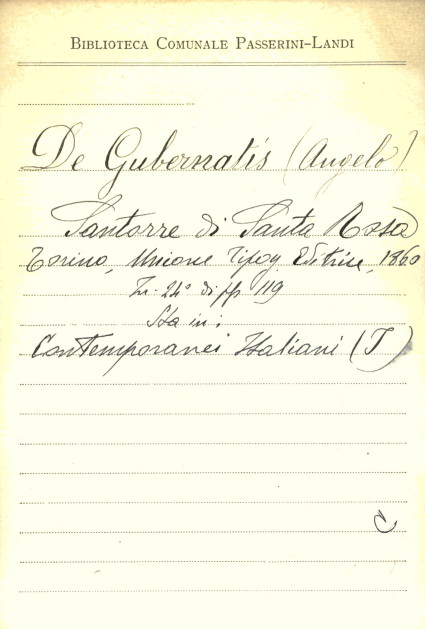 BIBLIOTECA COMUNALE PASSERINI-LANDI
De Gubernatis (Angelo)
Santorre di Santa Rosa
Torino, Unione Tipog. Editrice, 1860
In- 24° di pp 119
Sta in:
Contemporanei Italiani (I)
C